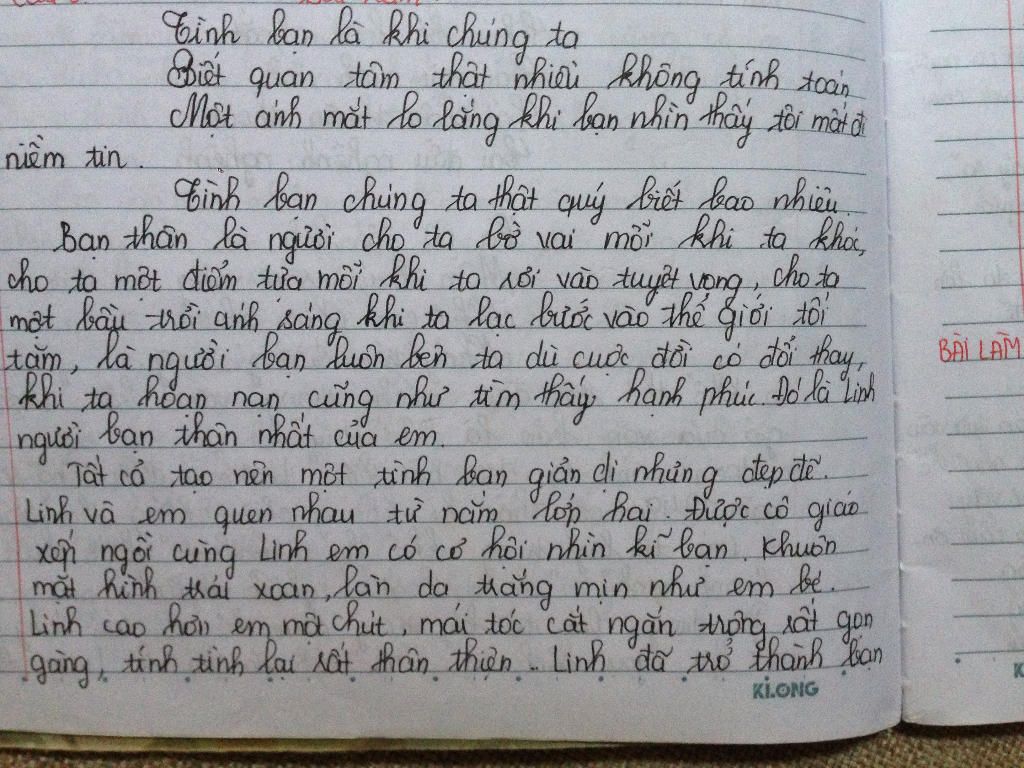 Tình bạn là khi chúng ta
Biết quan tâm thật nhiều không tính toán
Một ánh mắt lo lắng khi bạn nhìn thấy tôi mất đi
niềm tin.
Tình bạn chúng ta thật quý biết bao nhiêu.
Bạn thân là người cho ta bờ vai mỗi khi ta khóc,
cho ta một điểm tựa mỗi khi ta rơi vào tuyệt vọng, cho ta
một bầu trời ánh sáng khi ta lạc bước vào thế giới tối
tăm, là người bạn luôn bên ta dù cuộc đời có đổi thay,
khi ta hoạn nạn cũng như tìm thấy hạnh phúc. Đó là Linh
người bạn thân nhất của em.
Tất cả tạo nên một tình bạn giản dị nhưng đẹp đẽ.
Linh và em quen nhau từ năm lớp hai. Được cô giáo
xếp ngồi cùng Linh em có cơ hội nhìn kĩ bạn. Khuôn
mặt hình trái xoan, làn da trắng mịn như em bé.
Linh cao hơn em một chút, mái tóc cắt ngắn trông rất gọn
gàng, tính tình lại rất thân thiện.. Linh đã trở thành bạn
KI.ONG
BÀI LÀM